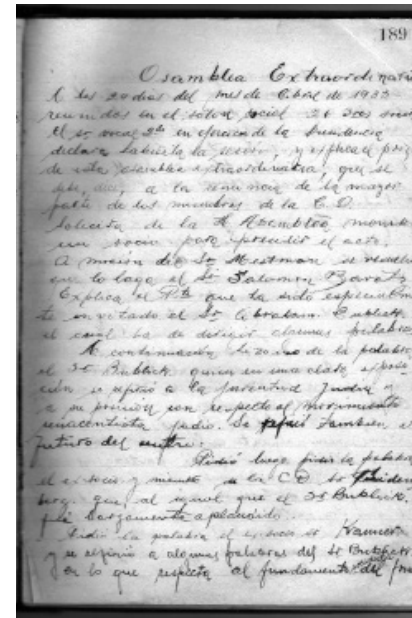 189
Osamblea Extraordinaria
A los 20 dias del mes de Abril de 1933
reunidos en el salon social 24 Socs
el sr vocal 2do en ejercicio de la Presidencia
declara abierta la sesion, y explica
de esta asamblea extraordinaria, que se
debe, dice, a la renuncia de la mayor
parte de los miembros de la C. D.
Solicita de la H Asamblea
un socio para presidir el acto.
A mocion del Sr Mestman se resuelve
que lo haga el Sr Salomon
Explica el Pte que ha sido especialmen
te invitado el Sr Abraham Bublick
el cual ha de dirigir algunas palabras
A continuacion hizo uso de la palabra
el Sr Bublick quien en una clara exposi
cion se refirio a la juventud judia y
a su posicion con respecto al movimiento
renacentista judio. Se tambien
futuro del
Pidió luego la palabra
el ex socio y miembro de la C D Sr
berg que, al igual que el Sr Bublick,
fué largamente aplaudido.
Pidió la palabra el ex socio Sr Kanner
y se refirio a algunas palabras del Sr Bublick
en lo que respecta al fundamento del